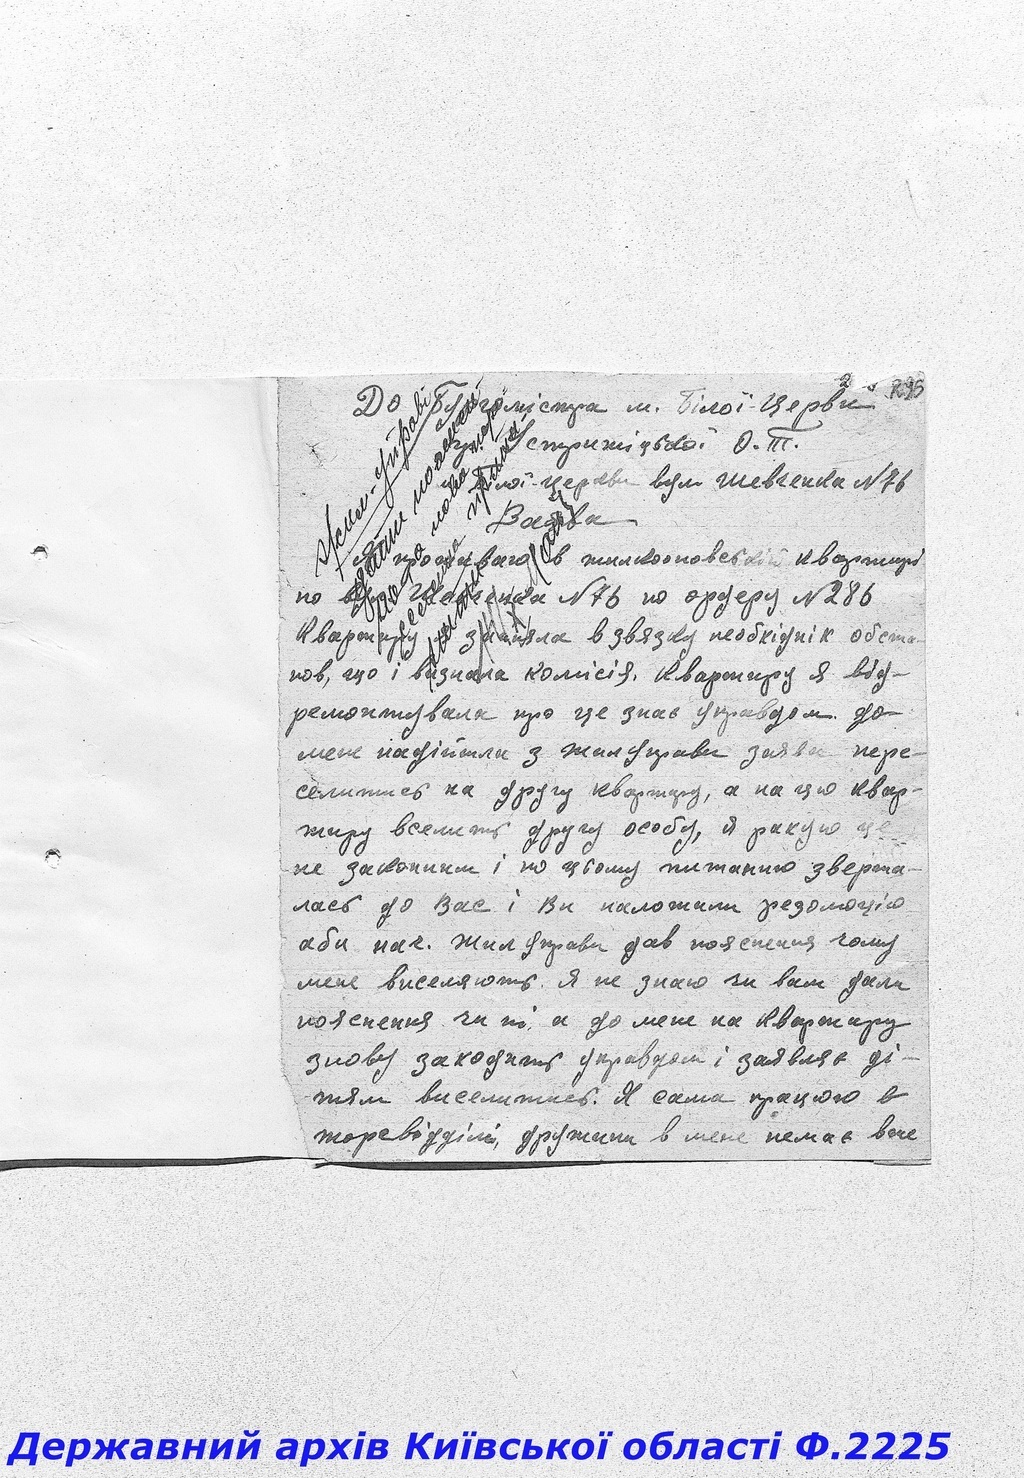 295
До Бургомістра м. Білої-Церкви
Стрижіцької О. Т.
Білої-Церкви вул Шевченка №76
Заява
Я проживаю в жилкооповській квартирі
по вул Шевченка №76 по ордеру №286
Квартиру я зайняла в звязку необхіднік обста-
нов, що і визнала комісія. Квартиру я від-
ремонтувала про це знає управдом. до
мене надійшла з жилуправи заява пере-
селитись на другу квартиру, а на цю квар-
тиру вселить другу особу, я ракую це
не законним і по цьому питанню зверта-
лась до Вас і Ви наложили резолюцію
аби нач. Жилуправи дав пояснення чому
мене виселяють. Я не знаю чи вам дали
пояснення чи ні, а до мене на квартиру
знову заходить управдом і заявляє ді-
тям виселитись. Я сама працюю в
торгвідділі, дружини в мене немає вже
Жил-управі
Державний архів Київської області Ф.2225